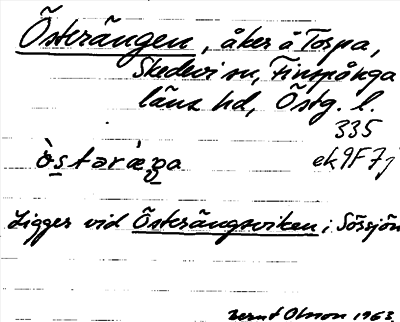 Österängen, åker å Torpa,
Skedevi sn, Finspånga
läns hd, Östg. l.
335
ek 9F7j
ò̀s̱təràŋa
Ligger vid Österängsviken i Sössjön
Bernt Olsson 1963.